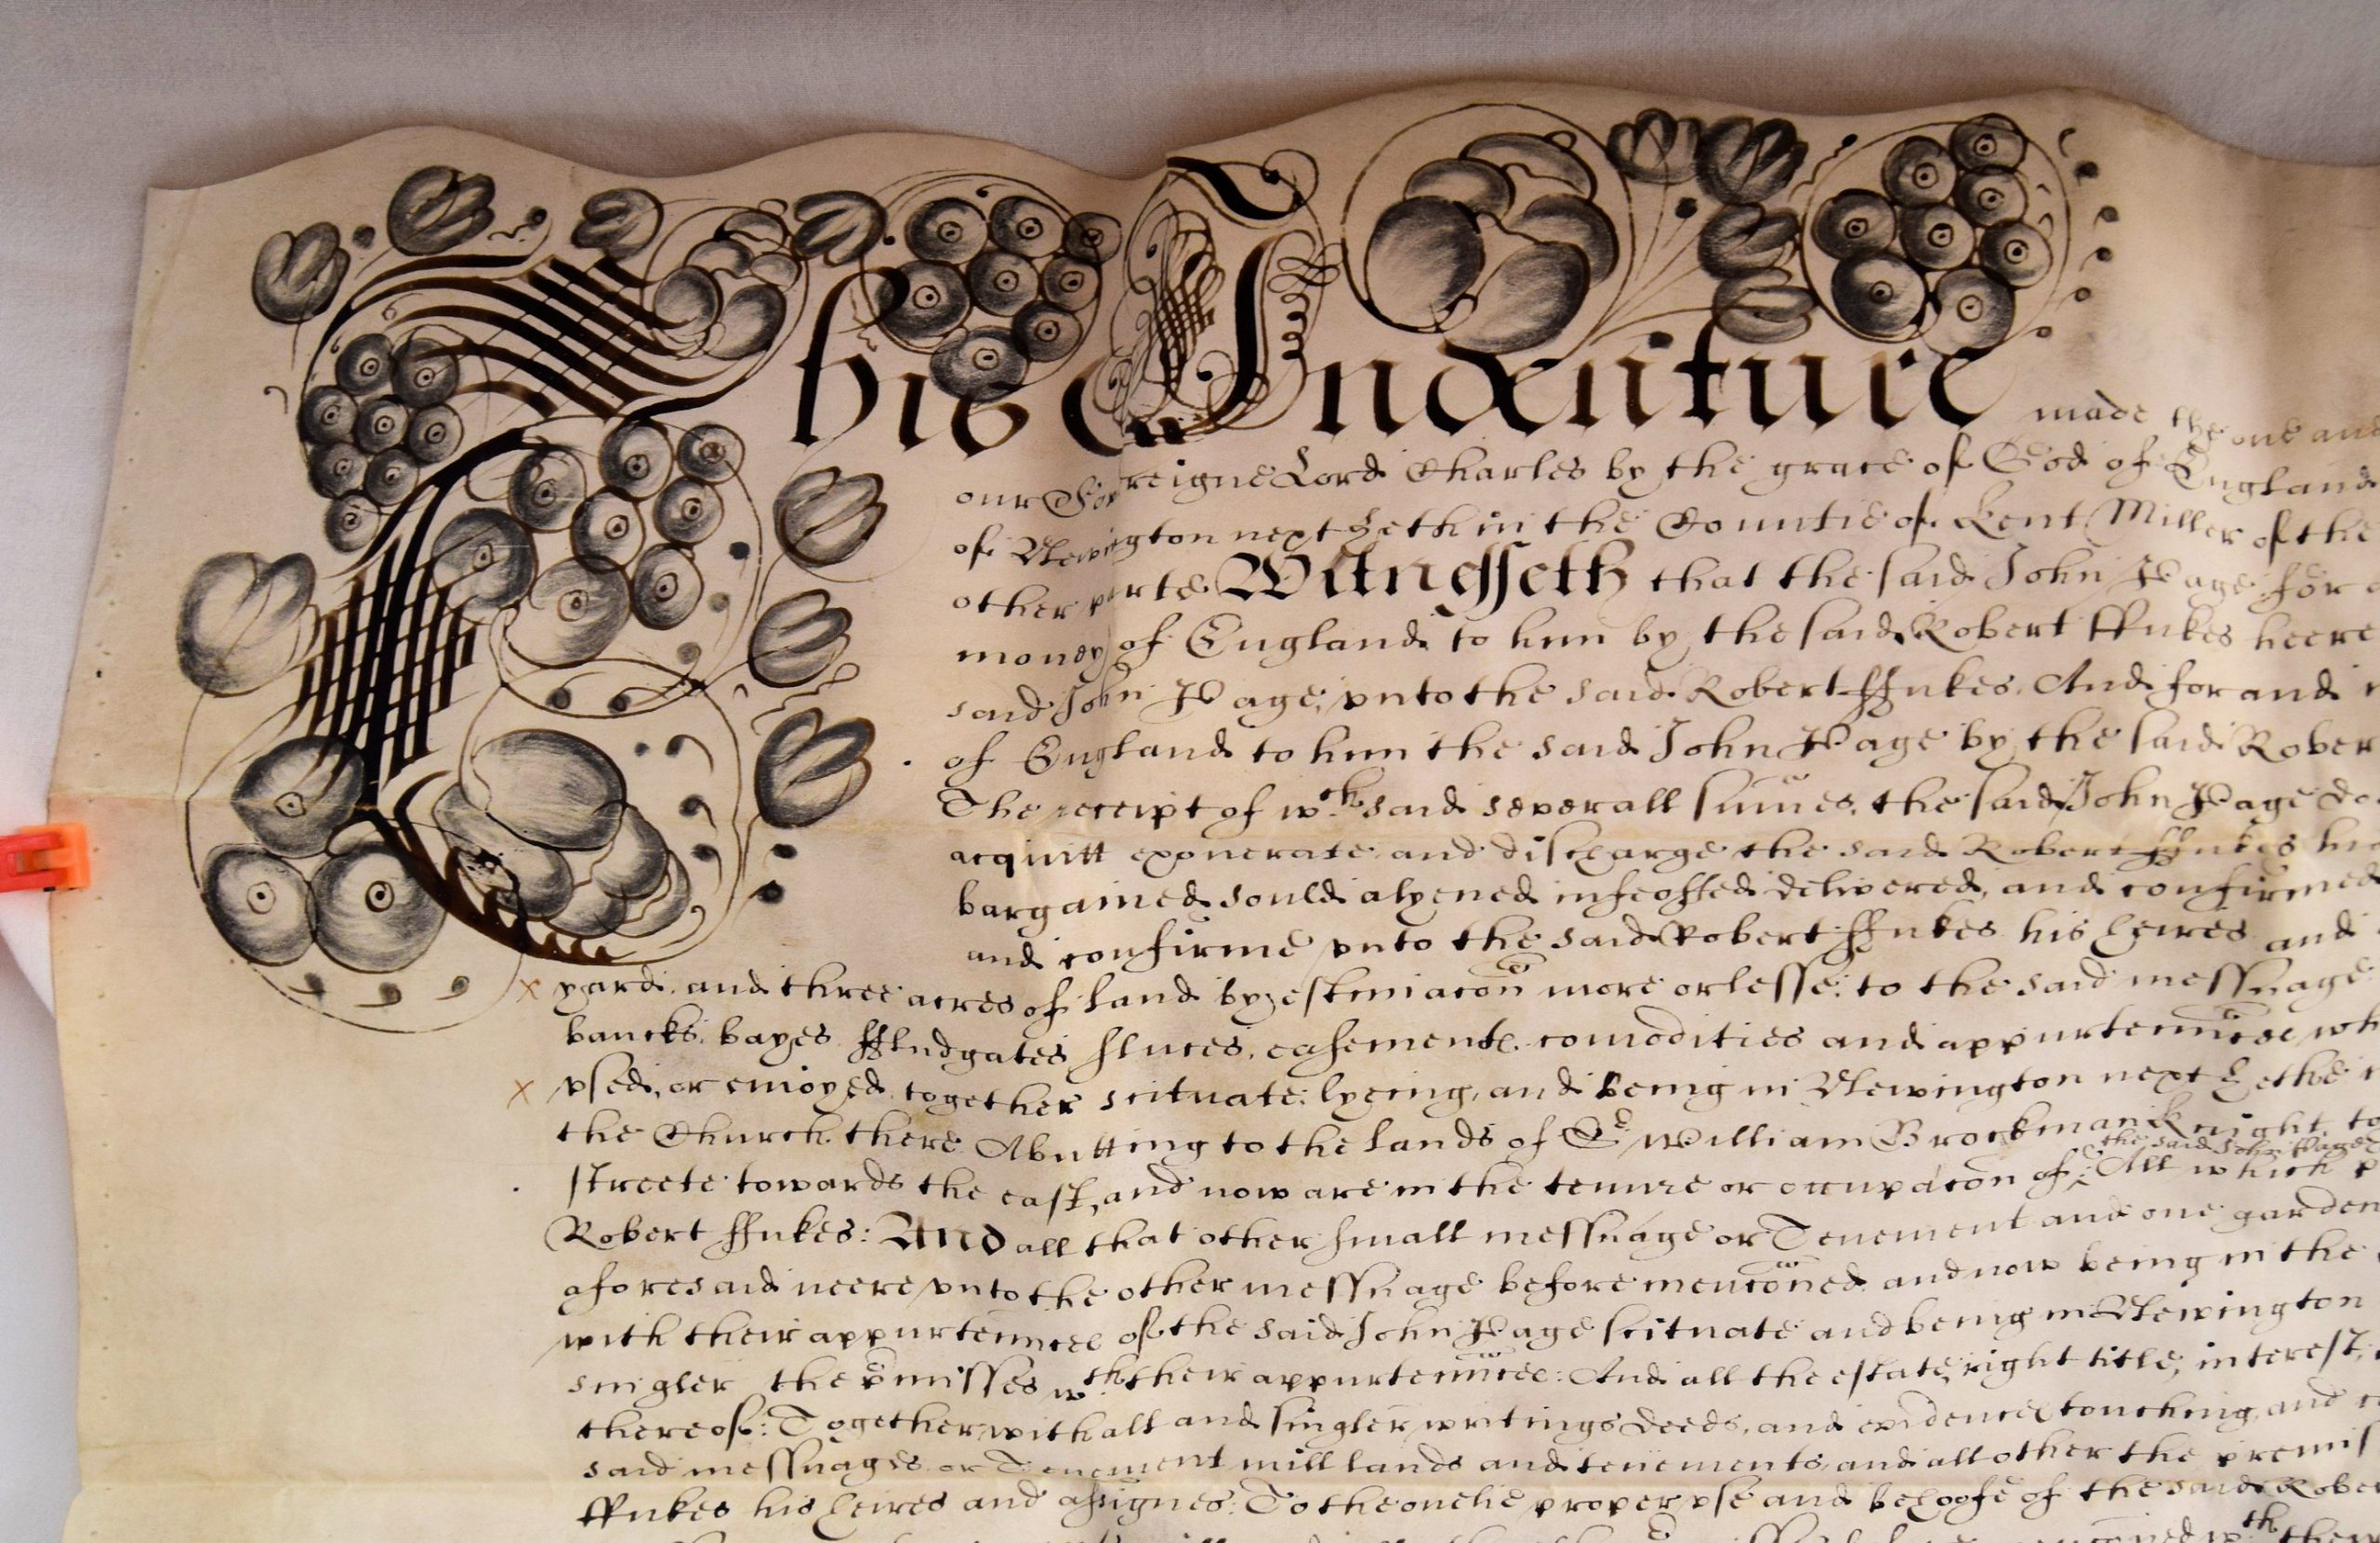 This Indenture made the one and
our Sovreigne Lord Charles by the grace of God of England
of Newington next Heth in the Countie of Kent Miller of the
other parte Witnesseth that the said John Page for
money of England to him by the said Robert ffukes heere
said John Page, vnto the said Robert ffukes, And for and
of England to him the said John Page by the said Rober
The receipt of wch said severall sumes, the said John Page do
acquitt exonerate and discharge the said Robert ffukes his
bargained sould alyened infeoffed delivered, and confirmed
and confirme vnto the said Robert ffukes his heires and
x yard, and three acres of land by estimacon more or lesse, to the said messuage
bancks, bayes ffludgates sluces, easements comodities and appurtennces wh
x vsed, or enioyed together scituate, lyeing, and being in Newington next Hethe
the Church there Abutting to the lands of Sr William Brockman Knight, to
the said John Page
streete towards the east, and now are in the tenure or occupacon of: All which p
Robert ffukes: And all that other small messuage or Tenement and one garden
aforesaid neere vnto the other messuage before menconed and now being in the
with their appurtennces of the said John Page scituate and being in Newington
singler the pmisses wth their appurtennces: And all the estate, right title, interest,
thereof: Together with all and singler writings deeds, and evidences touching, and
said messuages or Tenement mill lands and tenements, and all other the premis
ffukes his heires and assignes: To the onelie proper vse and behoofe of the said Rober
wth their